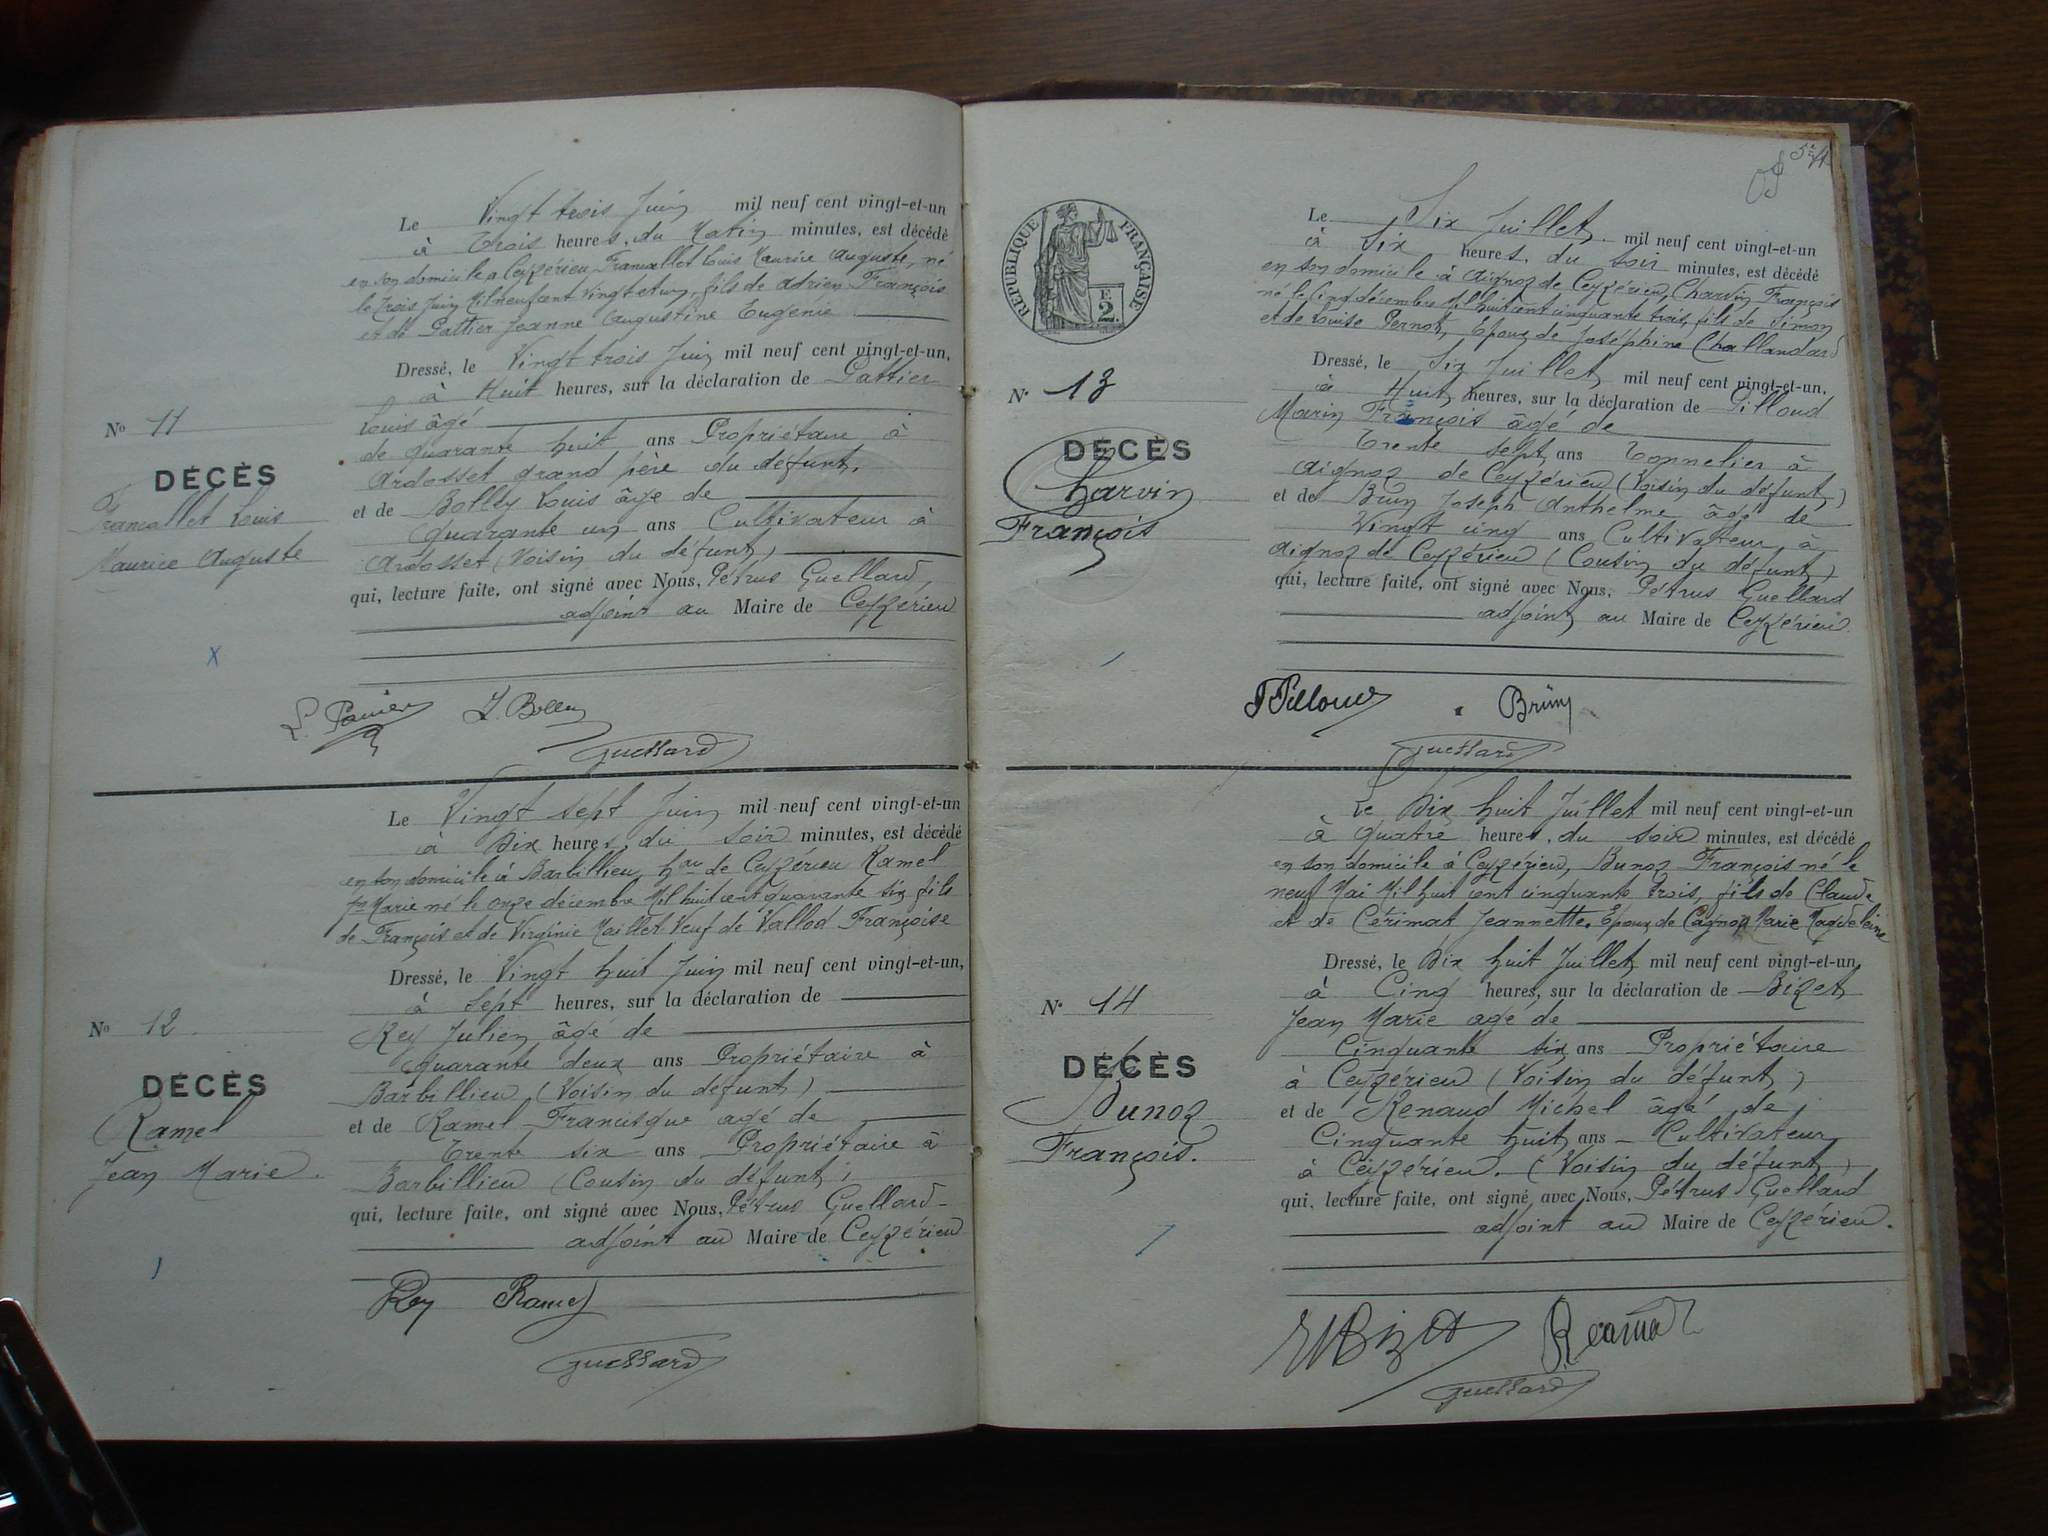 Le Vingt trois Juin mil neuf cent vingt-et-un
à trois heures, du Matin minutes, est décédé
en son domicile a Ceyzérieu, Francallet Louis Maurice Auguste, né
le trois Juin Mil neuf cent vingt et un, fils de Adrien François
et de Pattier Jeanne Augustine Eugénie
Dressé, le Vingt trois Juin mil neuf cent vingt-et-un,
à Huit heures, sur la déclaration de Pattier
Louis âgé
de quarante huit ans Propriétaire à
Ardosset grand père du défunt,
et de Bolley Louis âge de
quarante un ans Cultivateur à
Ardosset (Voisin du défunt)
qui, lecture faite, ont signé avec Nous, Pétrus Guessard,
adjoint au Maire de Ceyzérieu
No 11
DÉCÈS
Francallet Louis
Maurice Auguste
X
Guessard
Le Vingt sept Juin mil neuf cent vingt-et-un
à Dix heures, du soir minutes, est décédé
en son domicile à Barbillieu, hau de Ceyzérieu Ramel
Jn Marie né le onze décembre Mil huit cent quarante six fils
de François et de Virginie Maillet Veuf de Vallod Françoise
Dressé, le Vingt huit Juin mil neuf cent vingt-et-un,
à sept heures, sur la déclaration de
Rey Julien âgé de
quarante deux ans Propriétaire à
Barbillieu (Voisin du défunt)
et de Ramel Francisque agé de
trente six ans Propriétaire à
Barbillieu (Cousin du défunt)
qui, lecture faite, ont signé avec Nous, Pétrus Guessard
adjoint au Maire de Ceyzérieu
No 12
DÉCÈS
Ramel
Jean Marie
Rey Ramel
Guessard
REPUBLIQUE FRANÇAISE
F.
2.
Le Six Juillet mil neuf cent vingt-et-un
à Six heures, du soir minutes, est décédé
en son domicile à Aignoz de Ceyzérieu, Charvin François
né le cinq décembre Mil huit cent cinquante trois, fils de Simon
et de Louise Pernot, Epoux de Joséphine Challandard
Dressé, le Six Juillet mil neuf cent vingt-et-un,
à Huit heures, sur la déclaration de Pilloud
Marin François âgé de
trente sept ans Tonnelier à
Aignoz de Ceyzérieu (Voisin du défunt)
et de Brun Joseph Anthelme âgé de
Vingt cinq ans Cultivateur à
Aignoz de Ceyzérieu (Cousin du défunt)
qui, lecture faite, ont signé avec Nous, Pétrus Guessard
adjoint au Maire de Ceyzérieu.
N° 13
DÉCÈS
Charvin
François
Brun
Guessard
Le Dix huit Juillet mil neuf cent vingt-et-un
à quatre heures, du soir minutes, est décédé
en son domicile à Ceyzérieu, Bunoz François né le
neuf Mai Mil huit cent cinquante trois, fils de Claude
et de Cérimat Jeannette. Epoux de Cagnon Marie Magdeleine
Dressé, le Dix huit Juillet mil neuf cent vingt-et-un,
à Cinq heures, sur la déclaration de Bizet
Jean Marie agé de
Cinquante six ans Propriétaire
à Ceyzérieu (Voisin du défunt)
et de Renaud Michel âgé de
Cinquante huit ans - Cultivateur
à Ceyzérieu. (Voisin du défunt)
qui, lecture faite, ont signé avec Nous, Pétrus Guessard
adjoint au Maire de Ceyzérieu.
N° 14
DÉCÈS
Bunoz
François.
Guessard